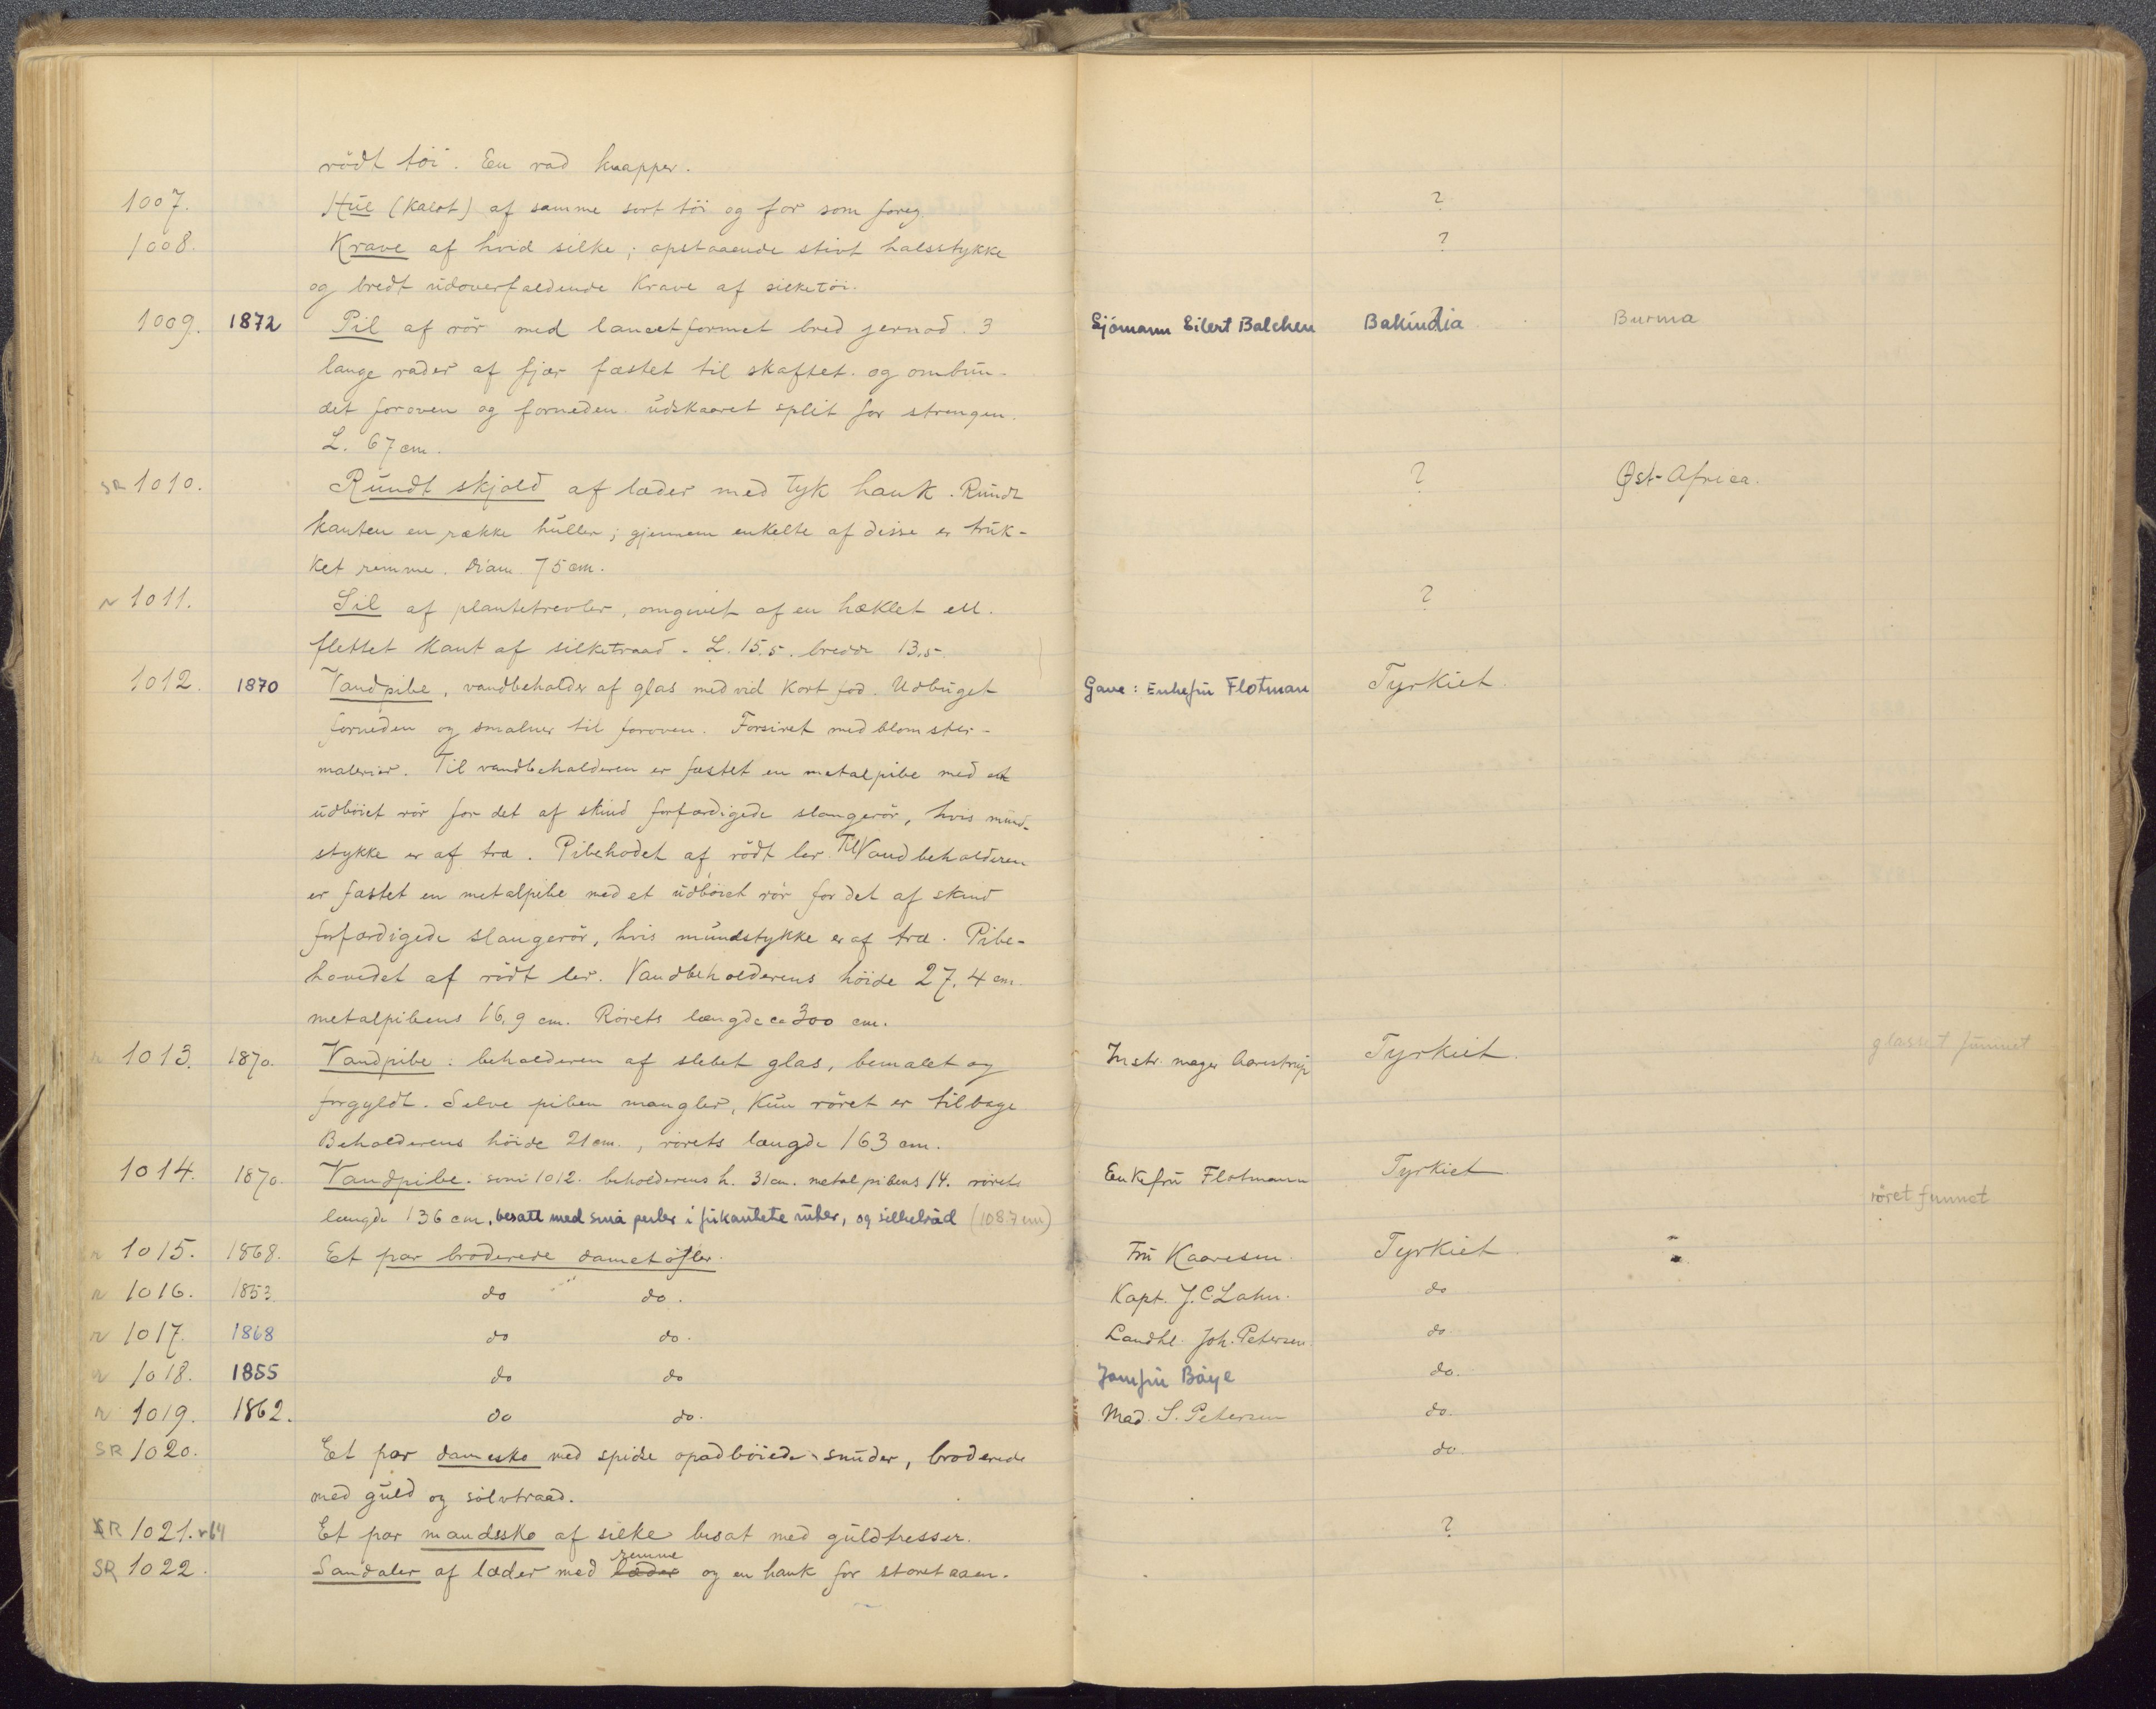 rödt töi. En rad knapper.
1007. Hue (Kalot) af samme sort töi og for som foreg. ?
1008. Krave af hvid silke; opstaaende stivt halsstykke ?
og bredt udoverfaldende Krave af silketöi.
1009. 1872 Pil af rör med lancetformet bred jernod. 3 Sjömann Eilert Balchen Bakindia Burma
lange rader af fjær fæstet til skaftet og ombun-
det foroven og forneden udskaaret split for strengen.
L. 67 cm.
SR 1010. Rundt skjold af læder med tyk hank. Rundt ? Øst-Africa.
Kanten en række huller; gjennem enkelte af disse er truk-
ket remme. Diam 75 cm.
r 1011. Sil af plantetrevler, omgivet af en hæklet ell. ?
flettet Kant af silketraad. L. 15.5. bredde 13,5.
1012. 1870 Vandpibe, vandbeholder af glas med vid Kort fod. Udbuget Gave: Enkefru Flotman Tyrkiet.
forneden og smalner til foroven. Forsiret med blomster-
malerier. Til vandbeholderen er fæstet en metalpibe med et
udböiet rör for det af skind forfærdigede slangerör, hvis mund-
stykke er af træ. Pibehodet af rödt ler. Til Vandbeholderen
er fæstet en metalpibe med et udböiet rör for det af skind
forfærdigede slangerör, hvis mundstykke er af træ. Pibe-
hovedet af rödt ler. Vandbeholderens höide 27,4 cm.
metalpibens 16,9 cm. Rörets længde ca 300 cm.
r 1013. 1870. Vandpibe: beholderen af slebet glas, bemalet og Instr. mager Aarestrup Tyrkiet. glasset funnet
forgyldt. Selve piben mangler, Kun röret er tilbage
Beholderens höide 21 cm., rörets længde 163 cm.
1014. 1870. Vandpibe. som 1012. beholderens h. 31 cm. metalpibens 14. rörets Enkefru Flotmann Tyrkiet
længde 136 cm, besatt med små perler i firkantete ruter, og silketråd (108.7 cm) röret funnet
r 1015. 1868. Et par broderede dametöfler. Fru Kaaresen. Tyrkiet. "
r 1016. 1853. do do. Kapt. J. C. Lahn. do
r 1017. 1868 do do. Landhl. Joh. Petersen do
r 1018. 1855 do do Jomfru Böye do.
r 1019. 1862. do do. Mad. S. Petersen do.
SR 1020. Et par damesko med spidse opadböiede snuder, broderede do.
med guld og sölvtraad.
SR 1021. Et par mandssko af silke besat med guldtresser. ?
SR 1022. Sandaler af læder med læder remme og en hank for storetaaen.